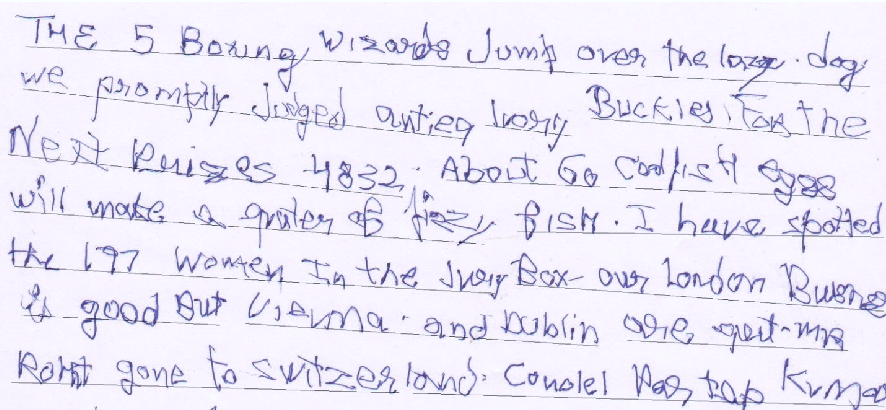 THE 5 Boxing Wizards Jump over the lazy. dog
we promptly Judged antieq Ivory Buckles, For the
Next Quizes 4832. About 60 Codfish eyes
will make a qrater of fizzy fish. I have spotted
the 197 women In the Jury Box- our London Busne
is good But Vienna. and Dublin are qeit-mr
Rohit gone to Switzerland.